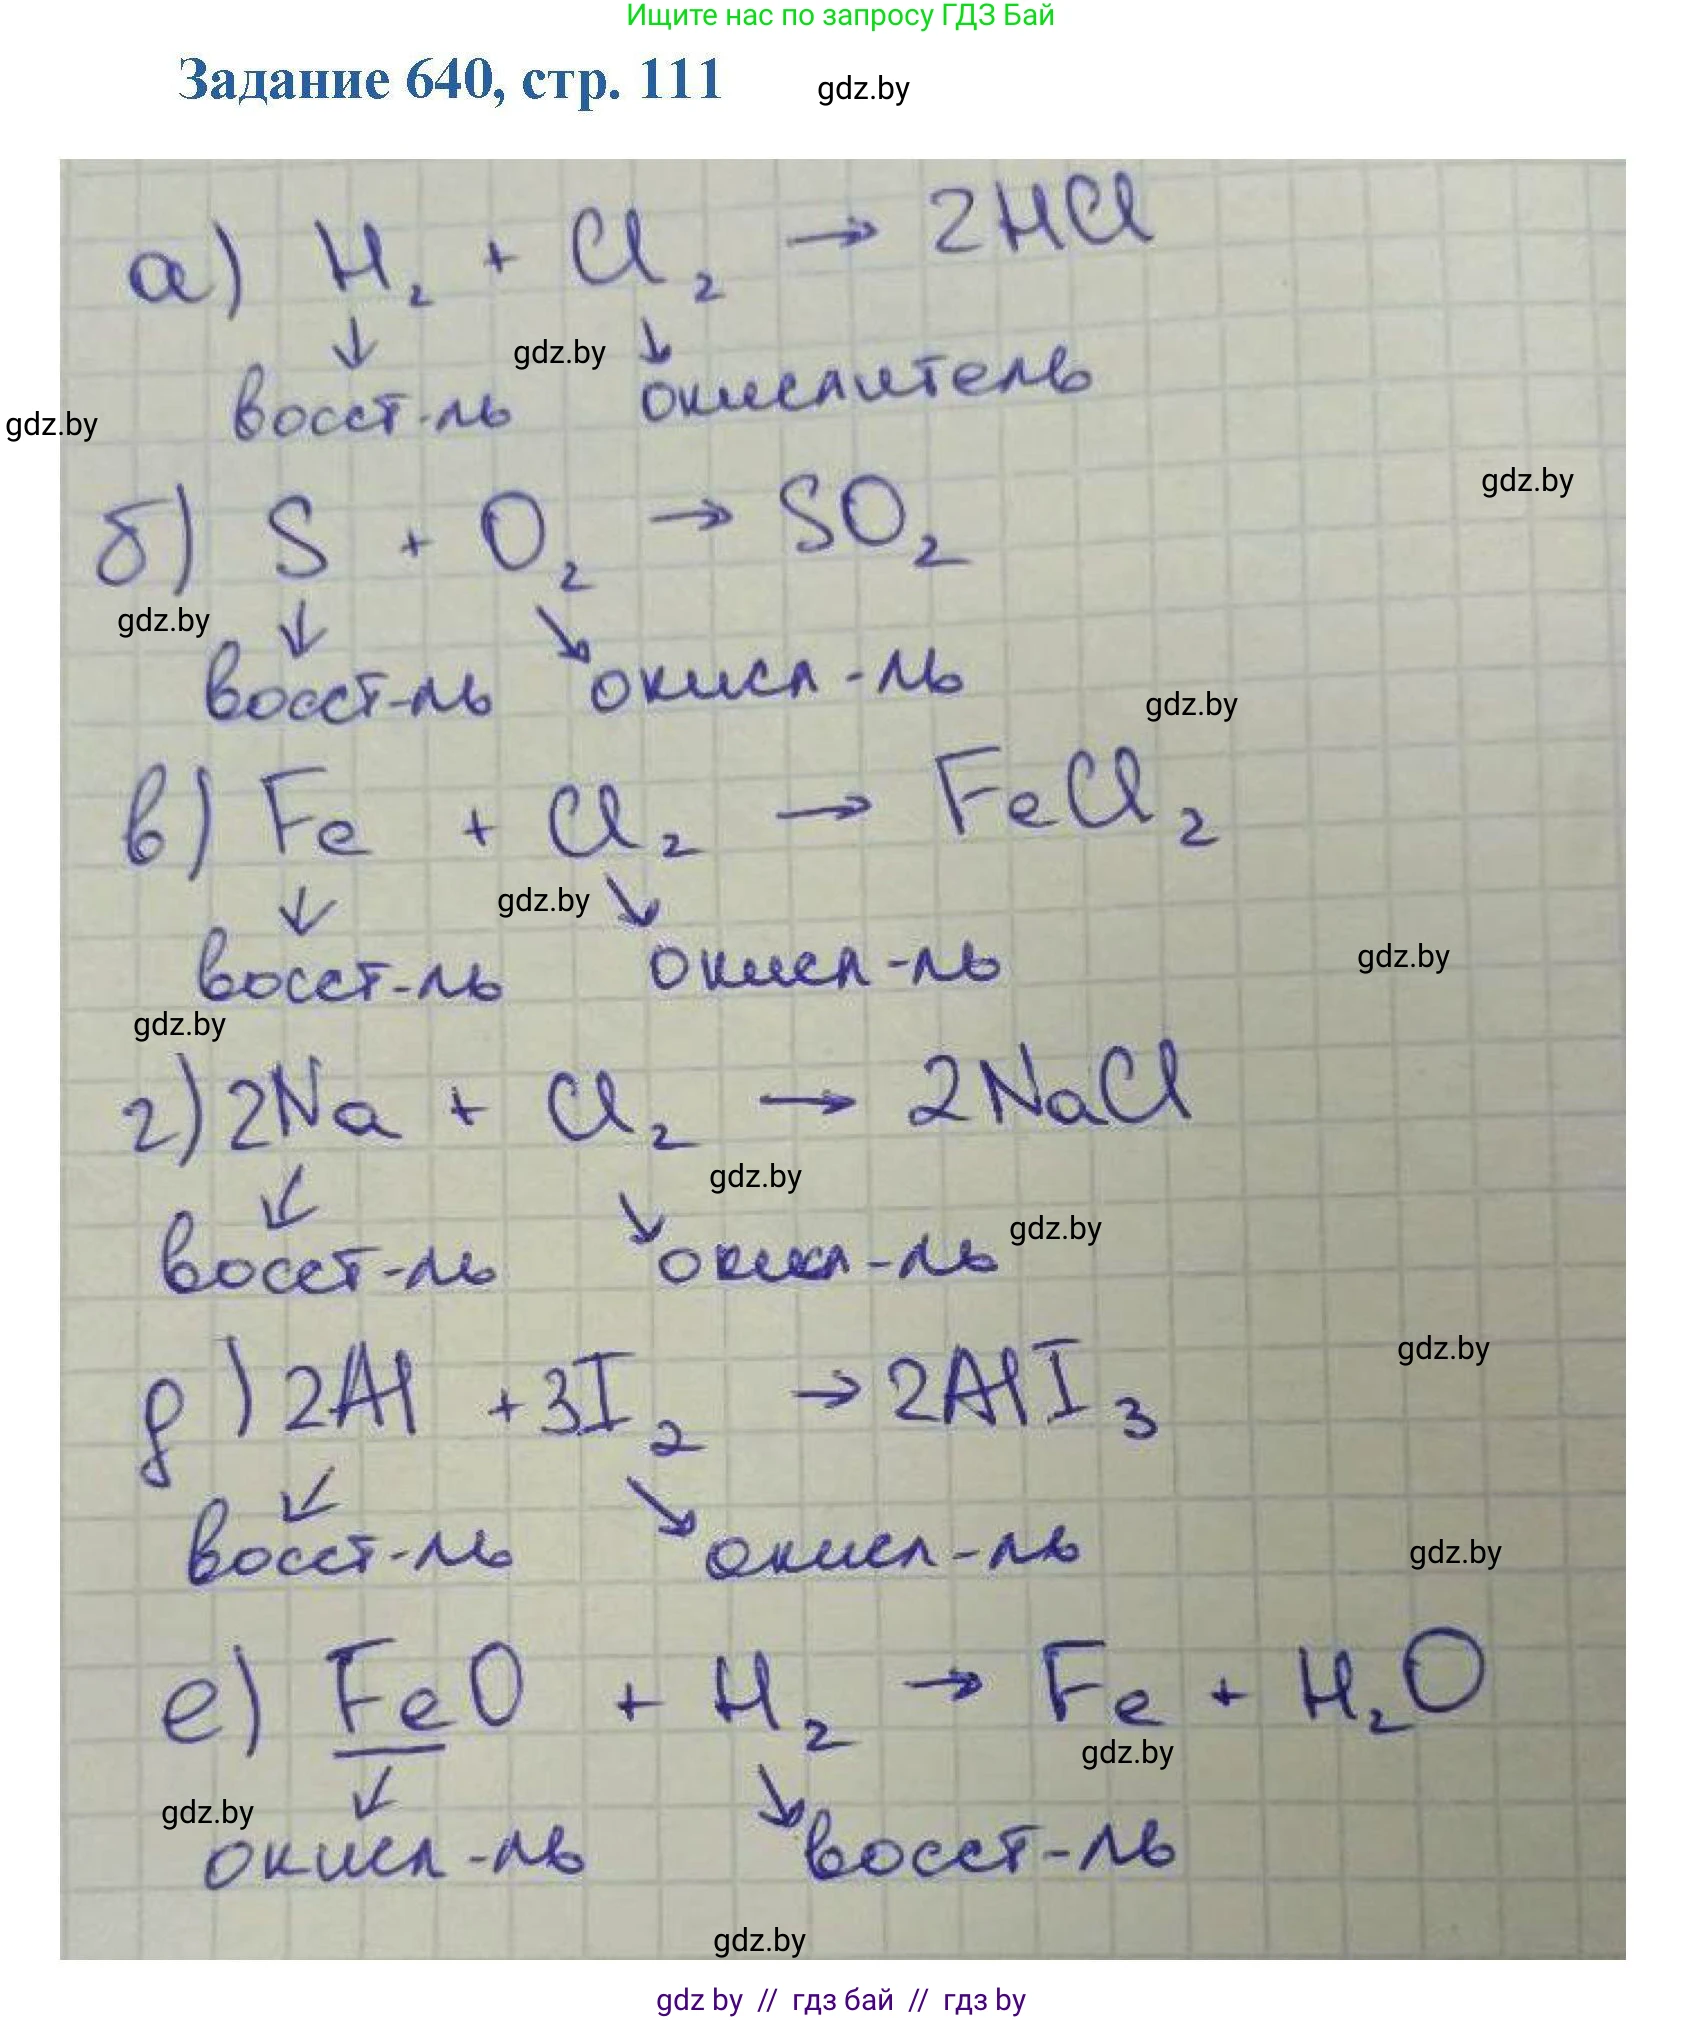 Ищите нас по запросу ГДЗ Бай
Задание 640, стр. 111 gdz.by
а) H₂ + Cl₂ → 2HCl
↓ gdz.by ↘
gdz.by восст-ль окислитель
gdz.by
б) S + O₂ → SO₂
gdz.by ↓ ↘
восст-ль окисл-ль gdz.by
в) Fe + Cl₂ → FeCl₂
↓ gdz.by ↘
восст-ль окисл-ль gdz.by
gdz.by
г) 2Na + Cl₂ → 2NaCl
↙ ↘ gdz.by
восст-ль окисл-ль gdz.by
д) 2Al + 3I₂ → 2AlI₃ gdz.by
↙ ↘
восст-ль окисл-ль gdz.by
е) FeO + H₂ → Fe + H₂O
gdz.by
gdz.by ↙ ↘
окисл-ль восст-ль
gdz.by
gdz by // гдз бай // гдз by